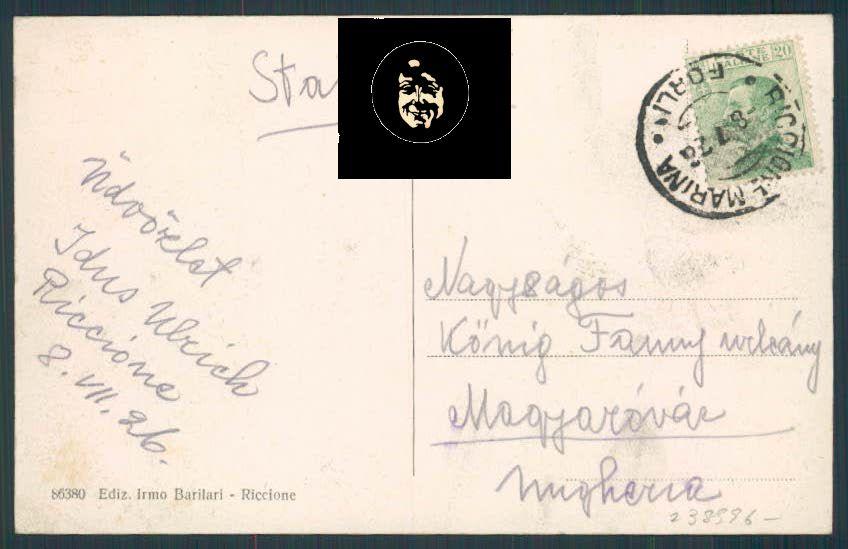 Sta
20
RICCIONE MARINA
FORLI
Üdvözlet
Idus Ulrich
Riccione
8. VII. 26.
Nagyságos
König Fanny urleány
Magyaróvár
Ungheria
238596-
86380 Ediz. Irmo Barilari - Riccione